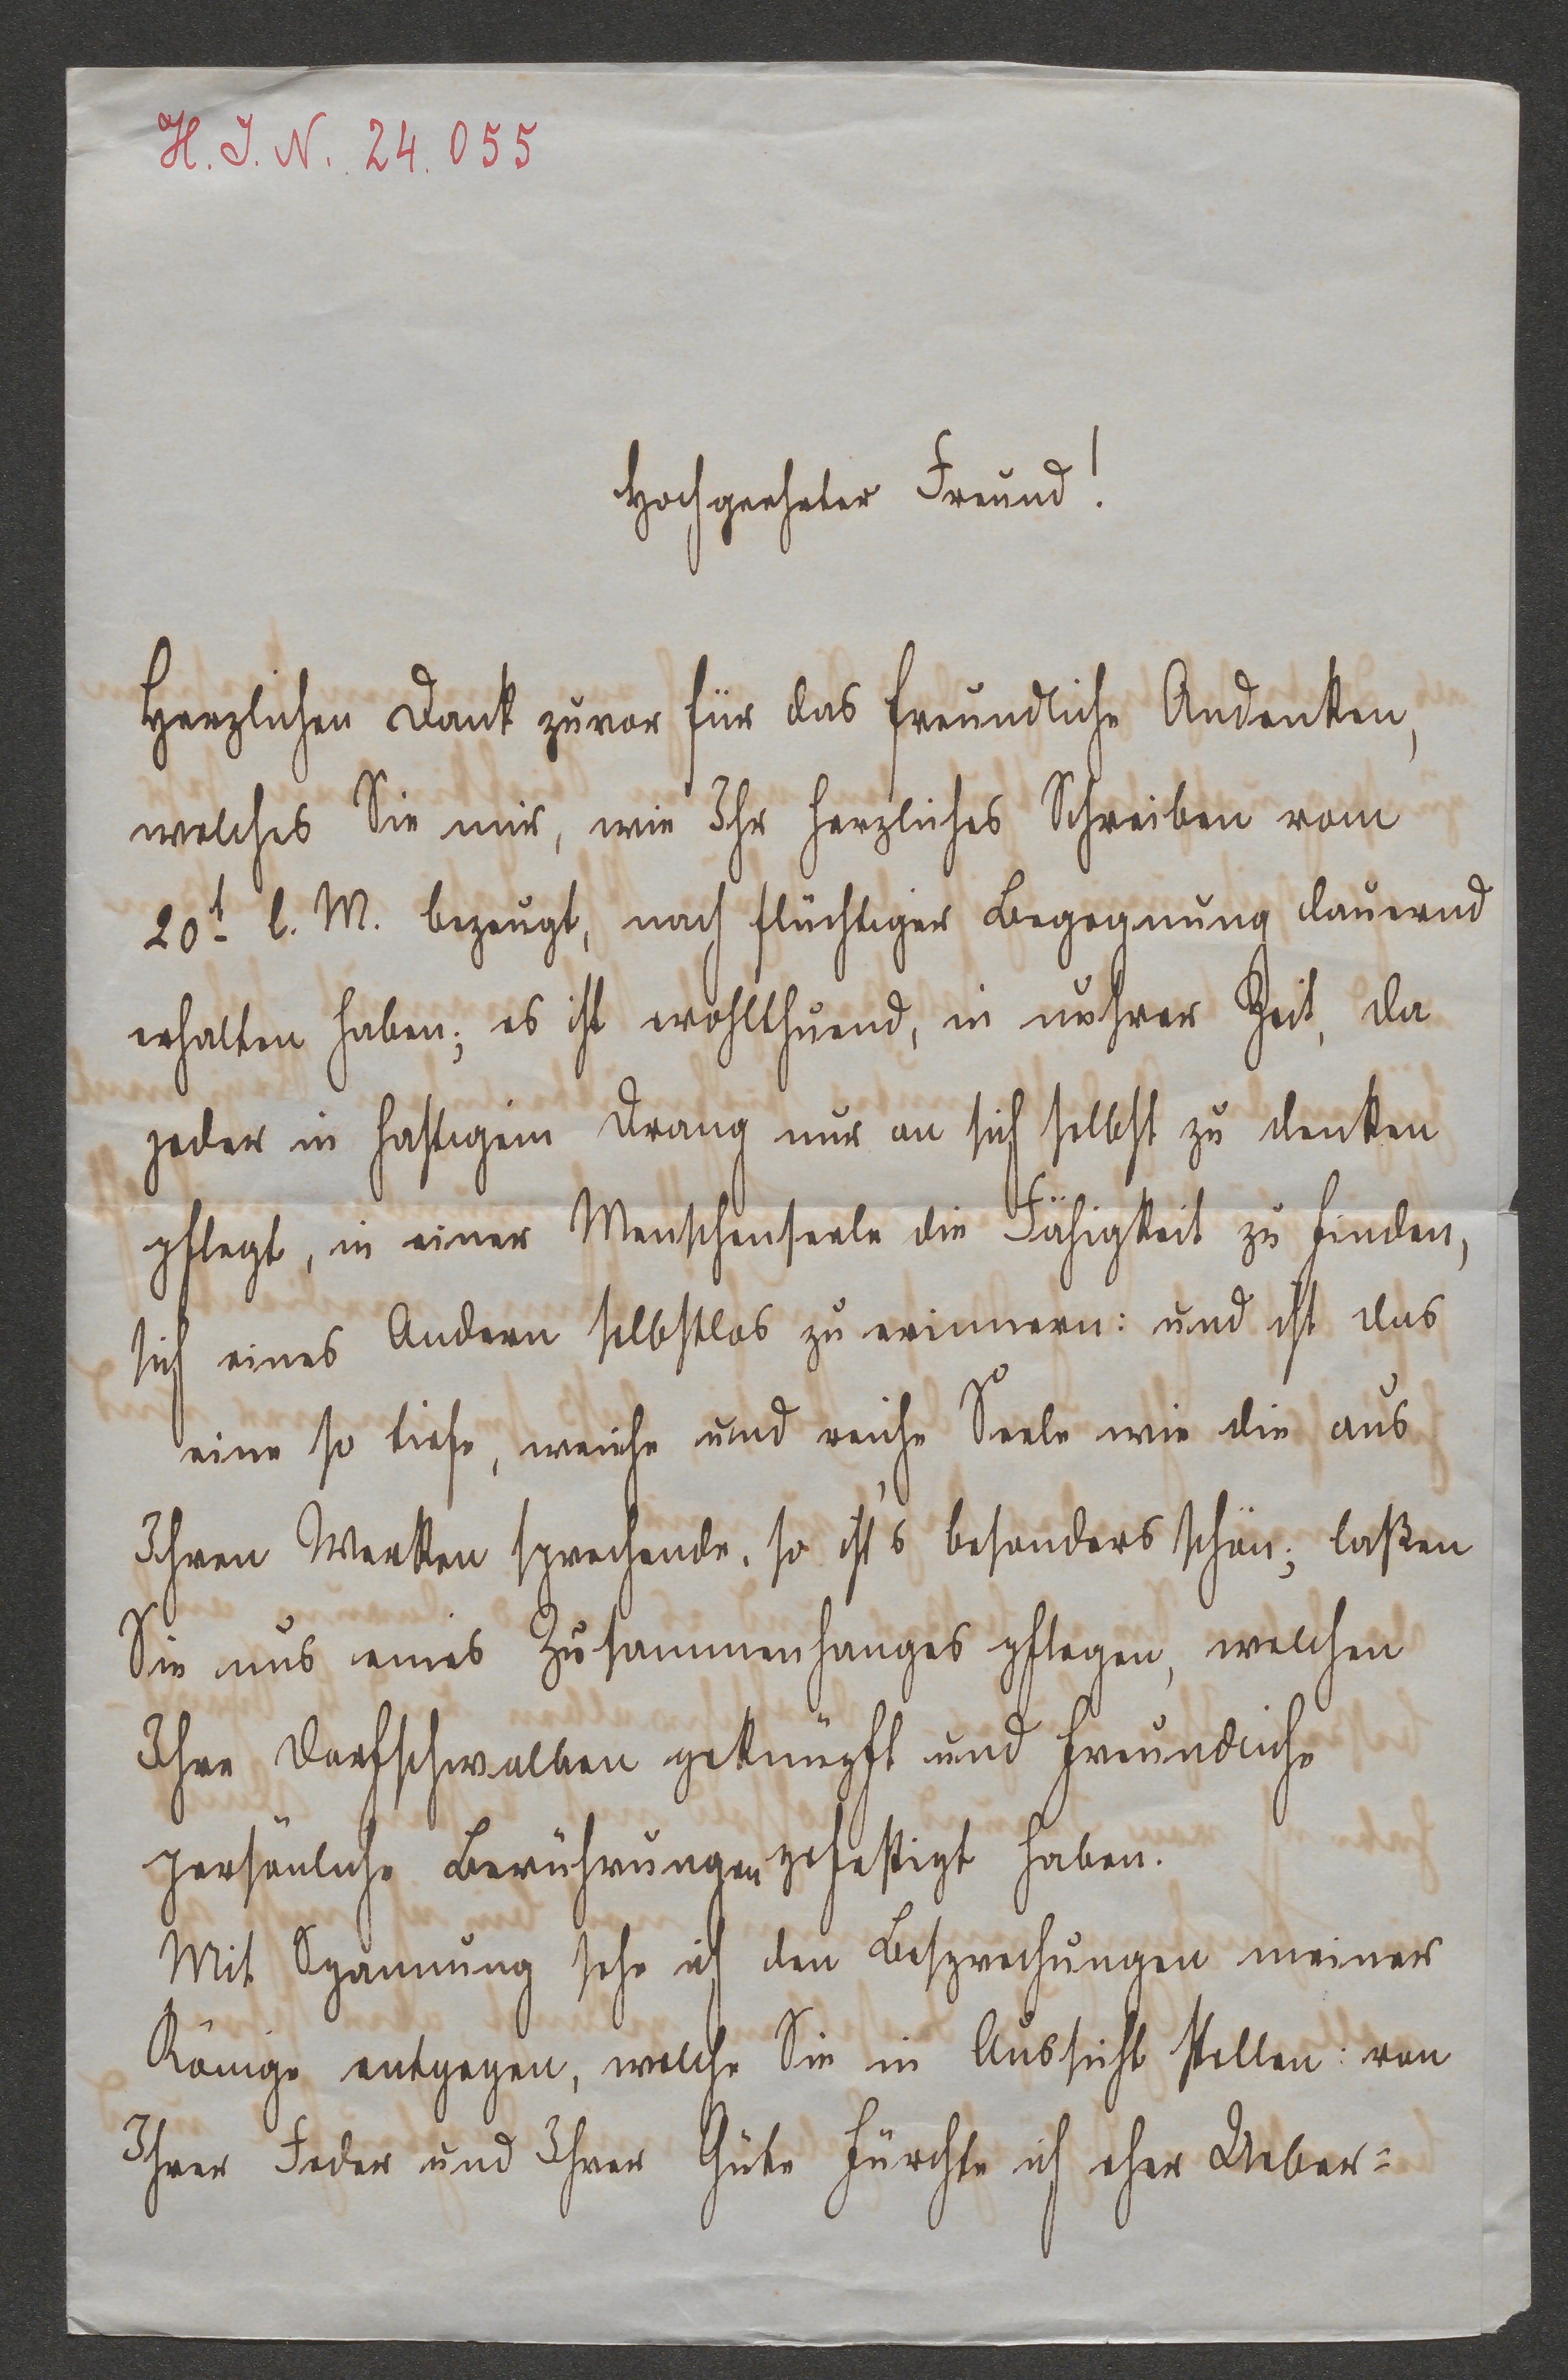 H. I. N. 24.055
Hochgeehrter Freund!
Herzlichen Dank zuvor für das freundliche Andenken,
welches Sie mir, wie Ihr herzliches Schreiben vom
20t. l. M. bezeugt, nach flüchtiger Begegnung dauernd
erhalten haben; es ist wohlthuend, in unsrer Zeit, da
jeder in hastigem Drang nur an sich selbst zu denken
pflegt, in einer Menschenseele die Fähigkeit zu finden,
sich eines Andern selbstlos zu erinnern: und ist das
eine so tiefe, weiche und reiche Seele wie die aus
Ihren Werken sprechende, so ist's besonders schön; laßen
Sie uns eines Zusammenhanges pflegen, welchen
Ihre Dorfschwalben geknüpft und freundliche
persönliche Berührungen gefestigt haben.
Mit Spannung sehe ich den Besprechungen meiner
Könige entgegen, welche Sie in Aussicht stellen: von
Ihrer Feder und Ihrer Güte fürchte ich eher Ueber=